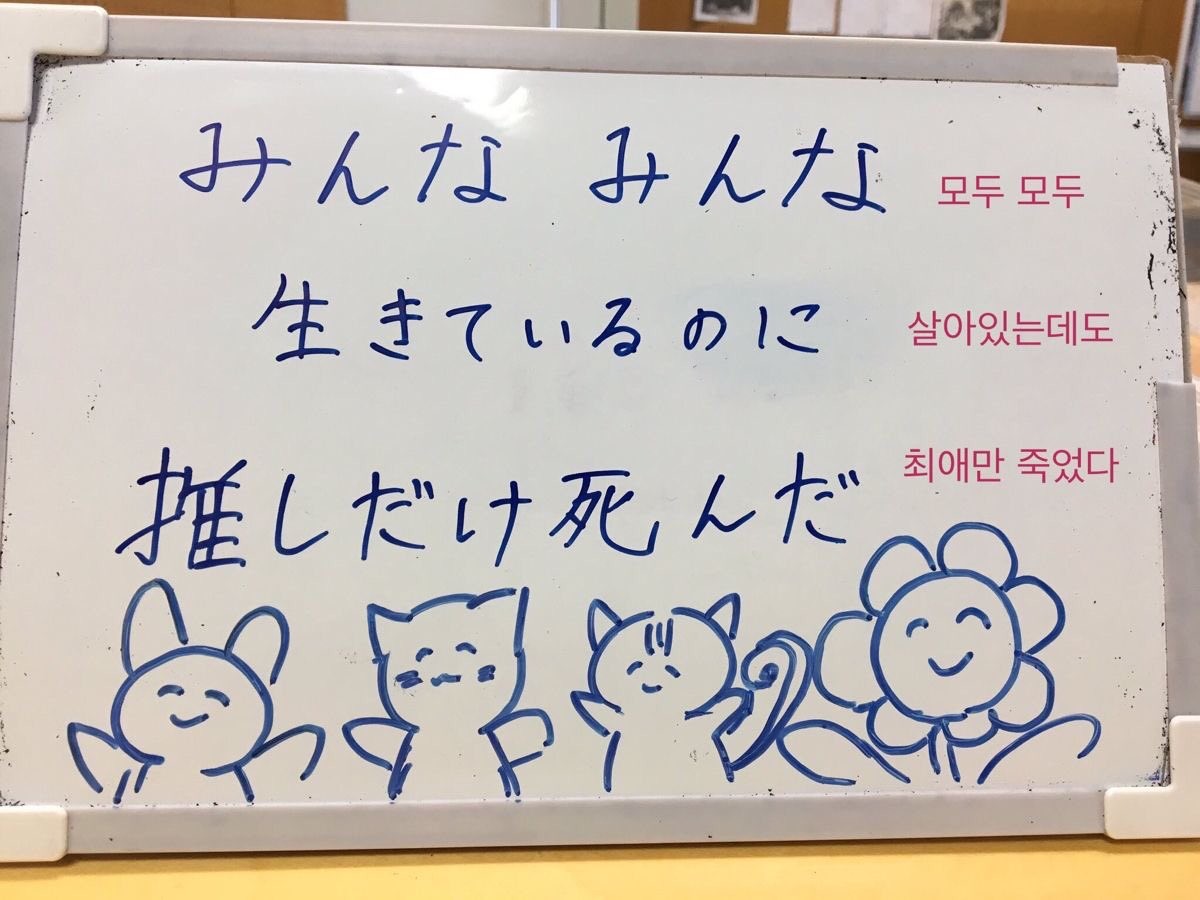 みんな みんな 모두 모두
生きているのに 살아있는데도
推しだけ死んだ 최애만 죽었다